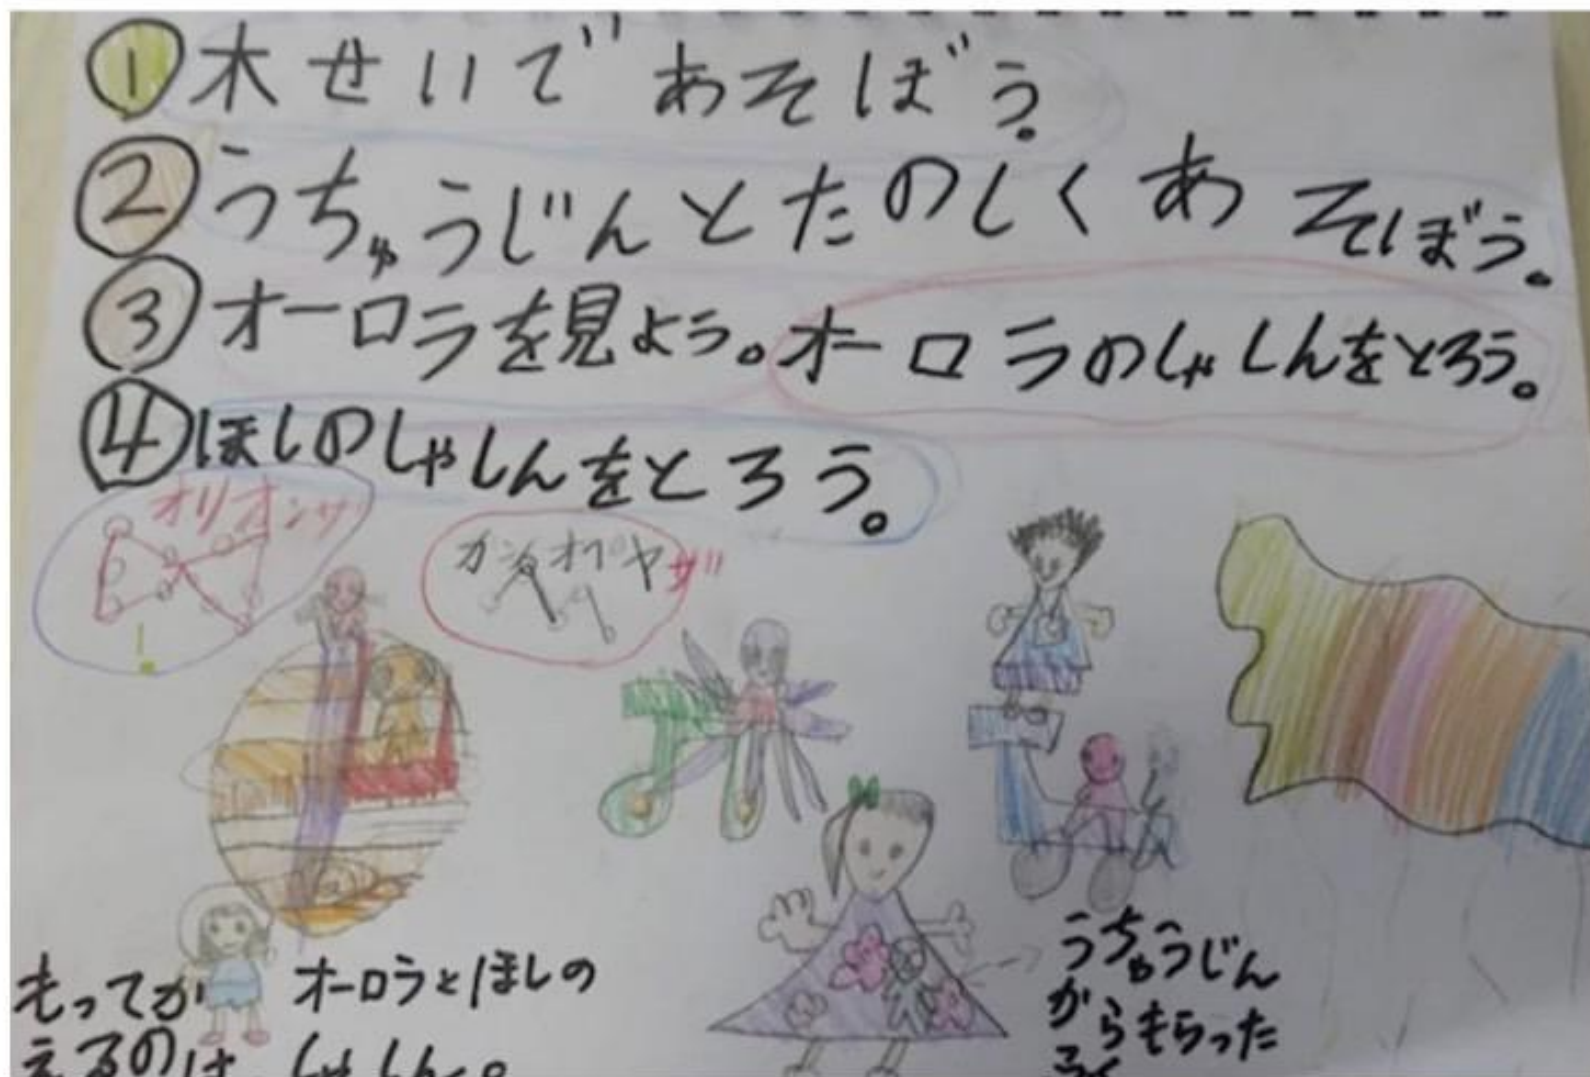 ①木せいであそぼう。
②うちゅうじんとたのしくあそぼう。
③オーロラを見よう。オーロラのしゃしんをとろう。
④ほしのしゃしんをとろう。
オリオンザ
カシオペヤザ
もってか
えるのは
オーロラとほしの
しゃしん。
うちゅうじん
からもらった
ふく